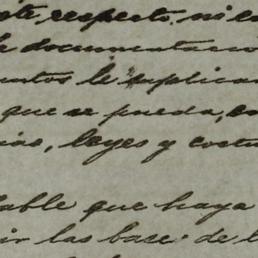 este, respecto, ni en
de documentacio
untos le suplica
que se pueda, en
ias, leyes y costu
able que haya
ir las base de l